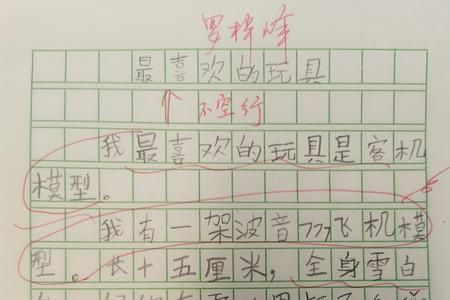 最喜欢的玩具
不空行
我最喜欢的玩具是客机
模型。
我有一架波音777飞机模
型。长十五厘米,全身雪白